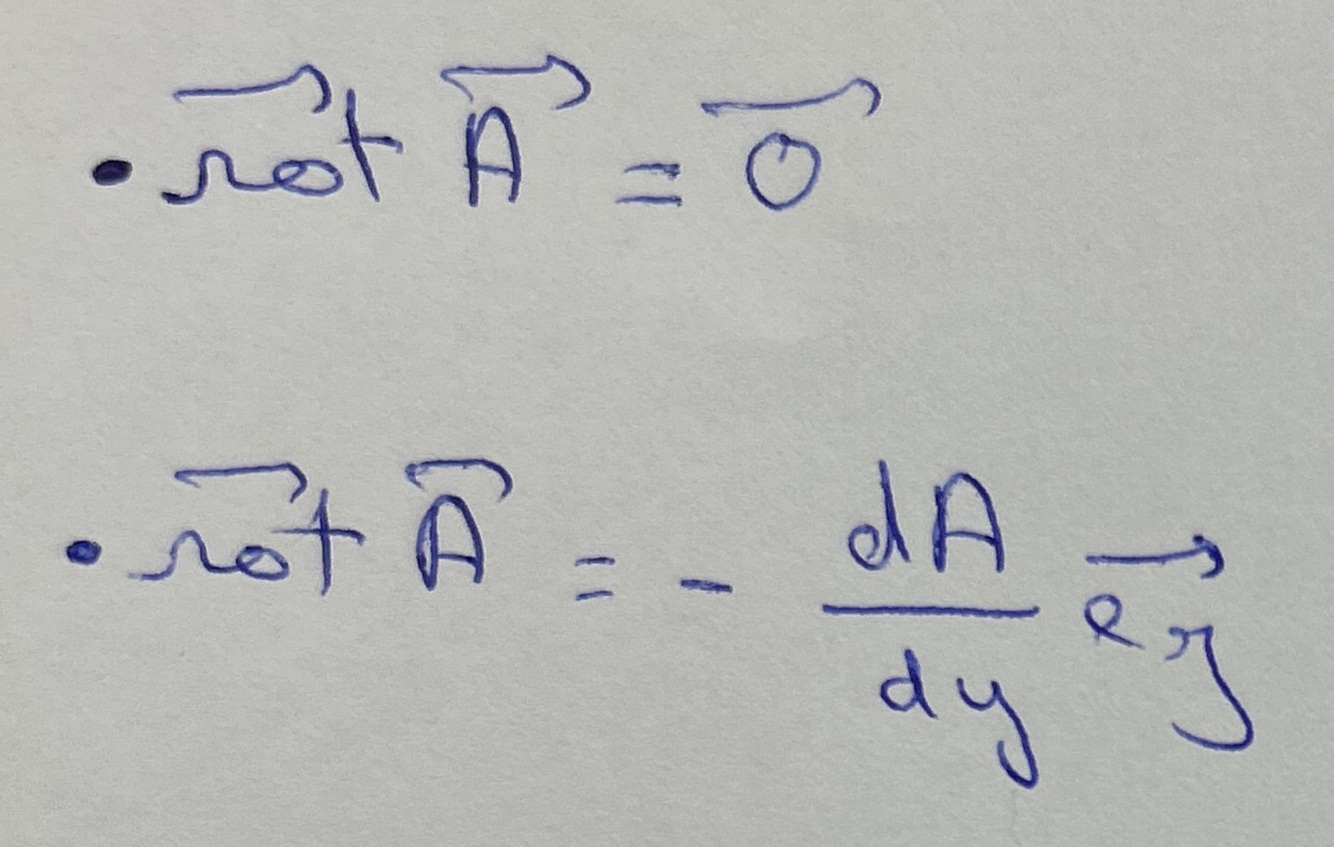 • $\overrightarrow{rot}\ \overrightarrow{A} = \overrightarrow{0}$
• $\overrightarrow{rot}\ \overrightarrow{A} = - \frac{dA}{dy} \overrightarrow{e_z}$